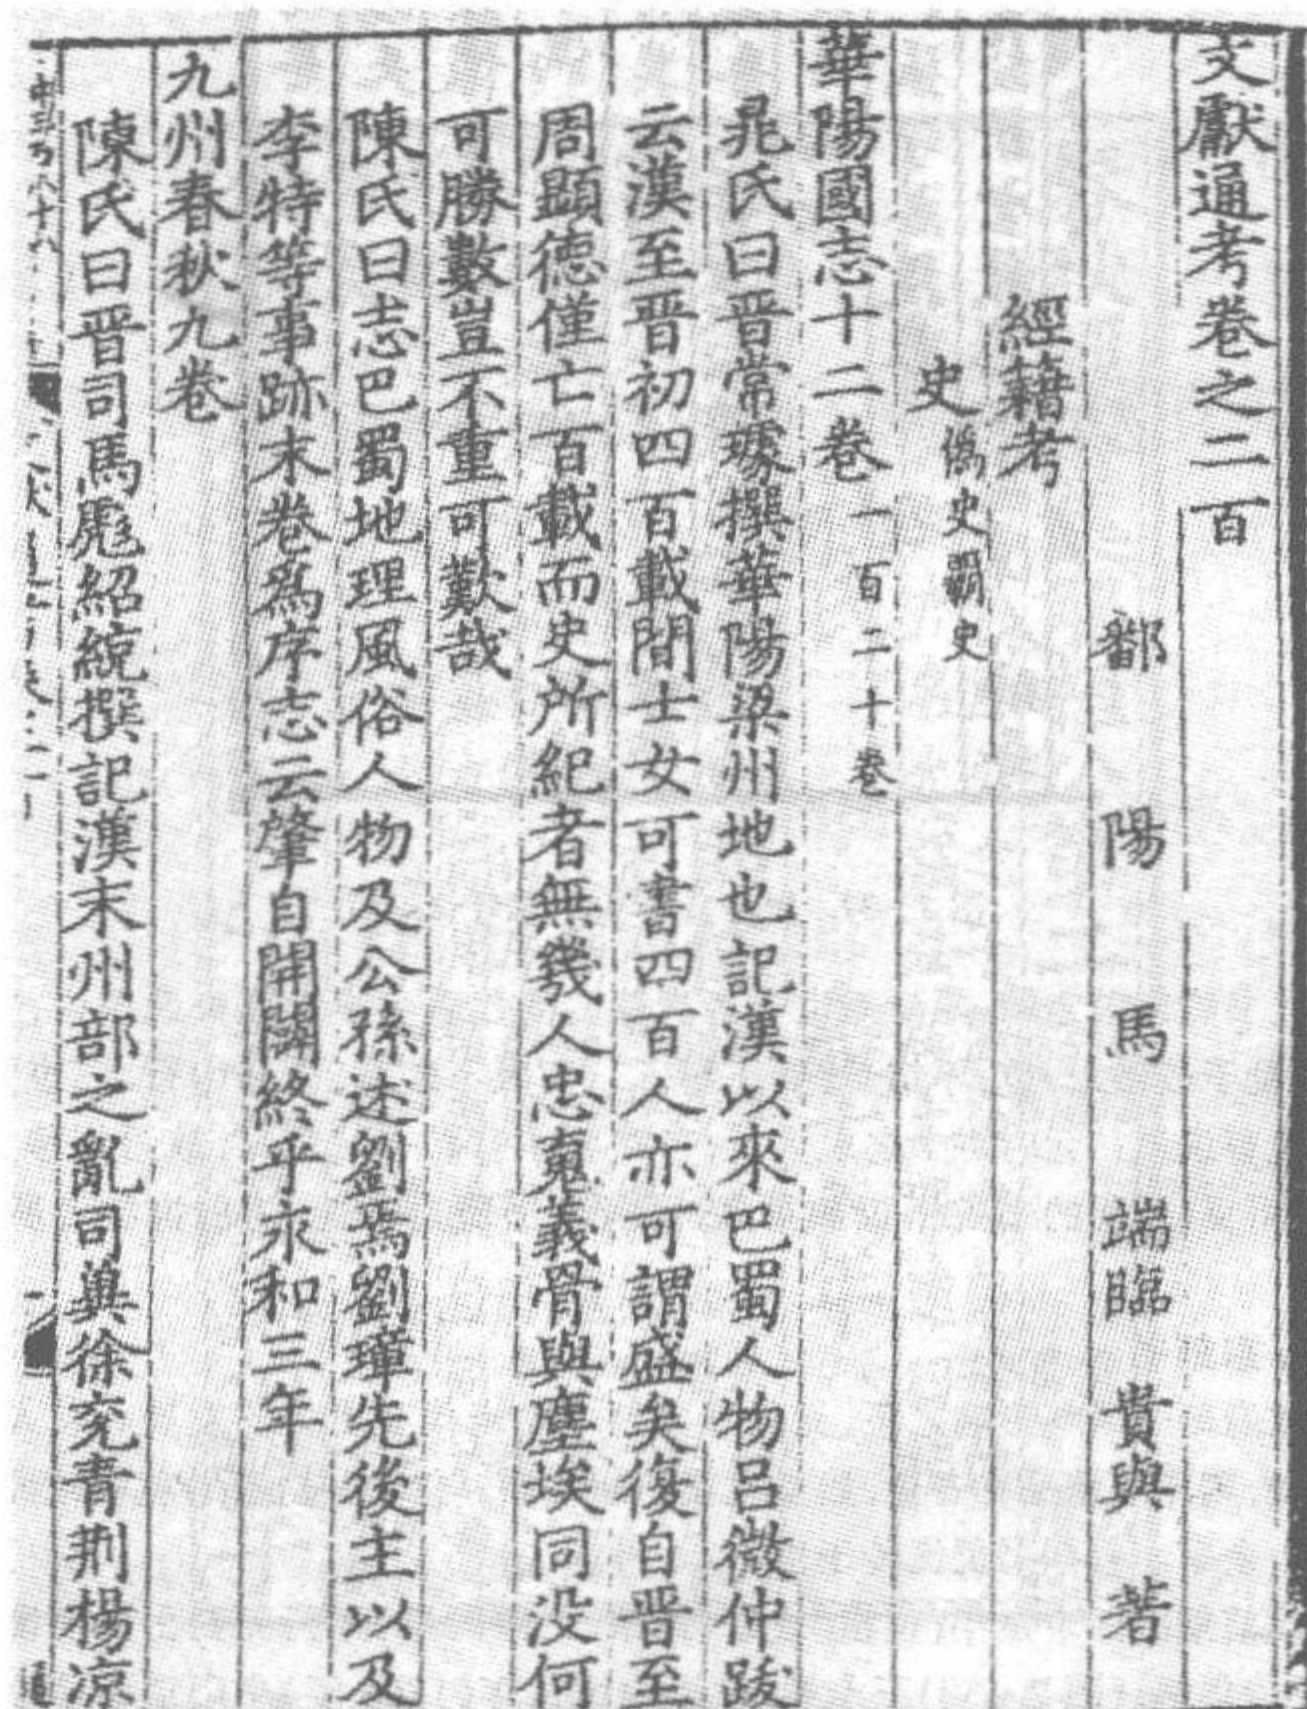 文獻通考卷之二百
鄱陽馬端臨貴與著
經籍考
史偽史霸史
華陽國志十二卷一百二十卷
晁氏曰晉常璩撰華陽梁州地也記漢以來巴蜀人物呂微仲跋
云漢至晉初四百載間士女可書四百人亦可謂盛矣復自晉至
周顯德僅亡百載而史所紀者無幾人忠䰟義骨與塵埃同没何
可勝數豈不重可歎哉
陳氏曰志巴蜀地理風俗人物及公孫述劉焉劉璋先後主以及
李特等事跡末卷爲序志云肇自開闢終乎永和三年
九州春秋九卷
陳氏曰晉司馬彪紹統撰記漢末州部之亂司冀徐兖青荆楊凉